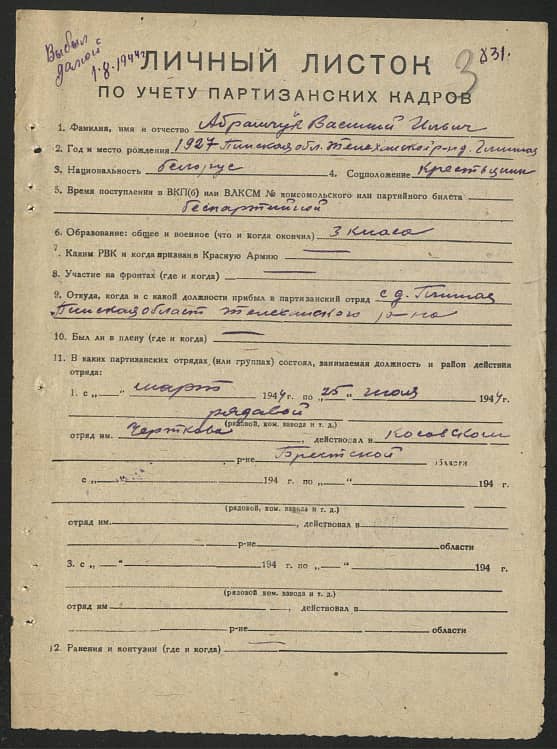 Выбыл
домой
1.8.1944г
3
831.
ЛИЧНЫЙ ЛИСТОК
ПО УЧЕТУ ПАРТИЗАНСКИХ КАДРОВ
1. Фамилия, имя и отчество Абрамчук Василий Ильич
2. Год и место рождения 1927 Пинская обл. Телеханский р-н д. Глинная
3. Национальность белорус 4. Соцположение Крестьянин
5. Время поступления в ВКП(б) или ВЛКСМ № комсомольского или партийного билета
беспартийной
6. Образование: общее и военное (что и когда окончил) 3 класа
7. Каким РВК и когда призван в Красную Армию
8. Участие на фронтах (где и когда)
9. Откуда, когда и с какой должности прибыл в партизанский отряд с д. Глинная
Пинская област Телеханского р-на
10. Был ли в плену (где и когда)
11. В каких партизанских отрядах (или группах) состоял, занимаемая должность и район действия
отряда:
1. с „ “ март 1944 г. по „25“ июля 1944 г.
рядавой
(рядовой, ком. взвода и т. д.)
отряд им. Черткова, действовал в Косовском
р-не Брестской области
с „ “ 194 г. по „ “ 194 г.
(рядовой, ком. взвода и т. д.)
отряд им. , действовал в
р-не области
3. с „ “ 194 г. по „ “ 194 г.
(рядовой ком. взвода и т. д.)
отряд им , действовал в
р-не области
12. Ранения и контузии (где и когда)